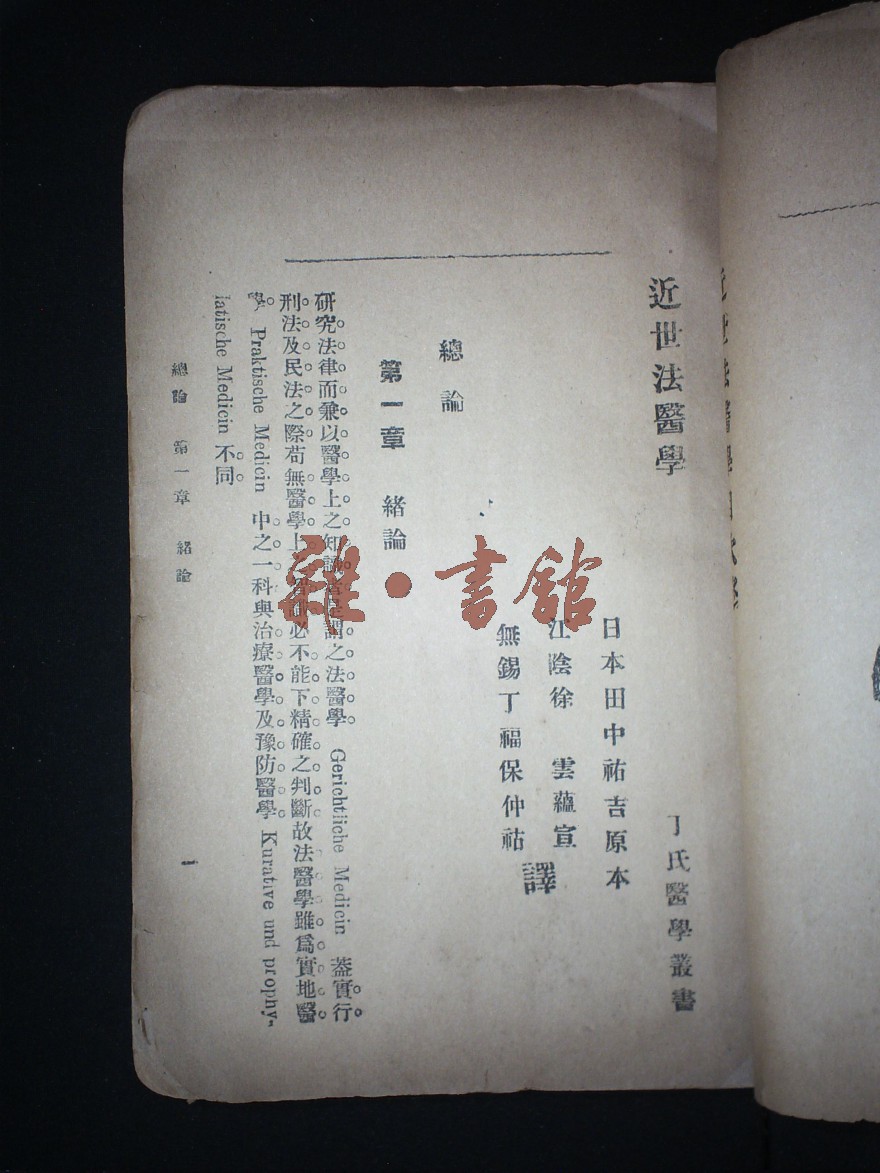 近世法醫學
丁氏醫學叢書
日本田中祐吉原本
江陰徐雲蘊宣
無錫丁福保仲祜
譯
總論
第一章 緒論
研究法律而兼以醫學上之知識者是謂之法醫學 Gerichtliche Medicin 葢實行
刑法及民法之際苟無醫學上 必不能下精確之判斷故法醫學雖爲實地醫
學 Praktische Medicin 中之一科與治療醫學及豫防醫學 Kurative und prophy-
latische Medicin 不同
總論 第一章 緒論
一
雜·書館